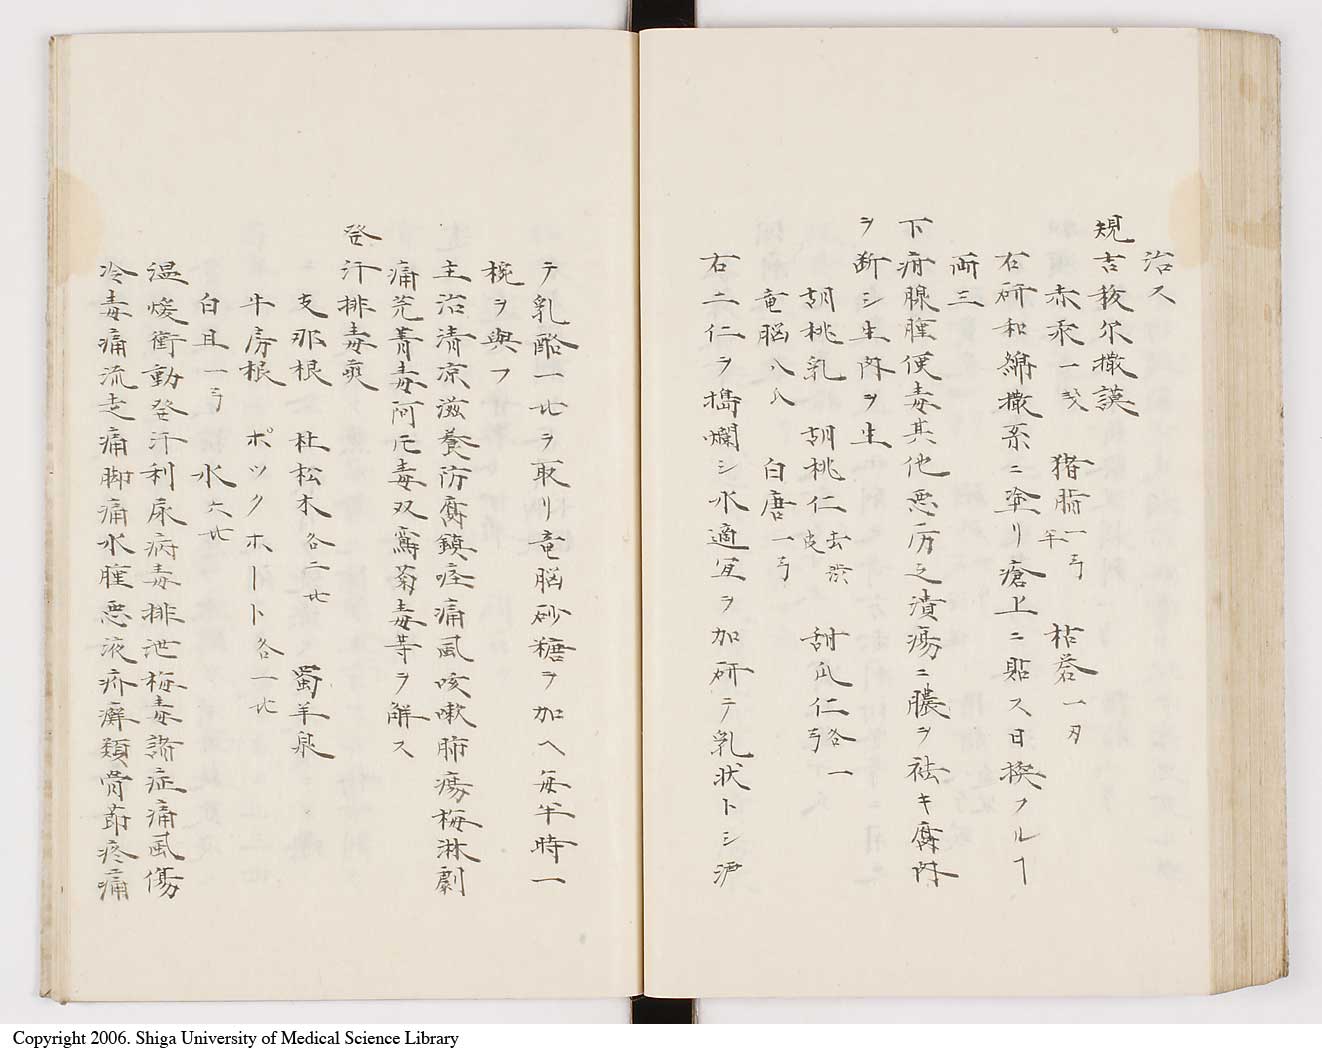 治ス
規吉抜尓撒謨
赤汞一戔 猪脂一弓半 枯礬一刃
右研和綿撒系ニ塗リ瘡上ニ貼ス日換フルヿ
両三
下疳腺腫便毒其他悪厉之潰瘍ニ膿ヲ祛キ腐肉
ヲ断シ生肉ヲ生
胡桃乳 胡桃仁去渋皮 甜瓜仁各一弓
竜脳八八 白唐一弓
右二仁ヲ擣爛シ水適宜ヲ加研テ乳状トシ漉
テ乳酪一ヲ取リ竜脳砂糖ヲ加ヘ毎半時一
椀ヲ與フ
主治清凉滋養防腐鎮痙痛風咳嗽肺瘍梅淋劇
痛芫菁毒阿片毒双鸞菊毒等ヲ解ス
発汗排毒煎
支那根 杜松木各二 蜀羊泉
牛房根 ポックホート各一
白且一弓 水六
温煖衝動発汗利尿病毒排泄梅毒諸症痛風傷
冷毒痛流走痛脚痛水腫悪液疥癬類骨節疼痛
Copyright 2006. Shiga University of Medical Science Library